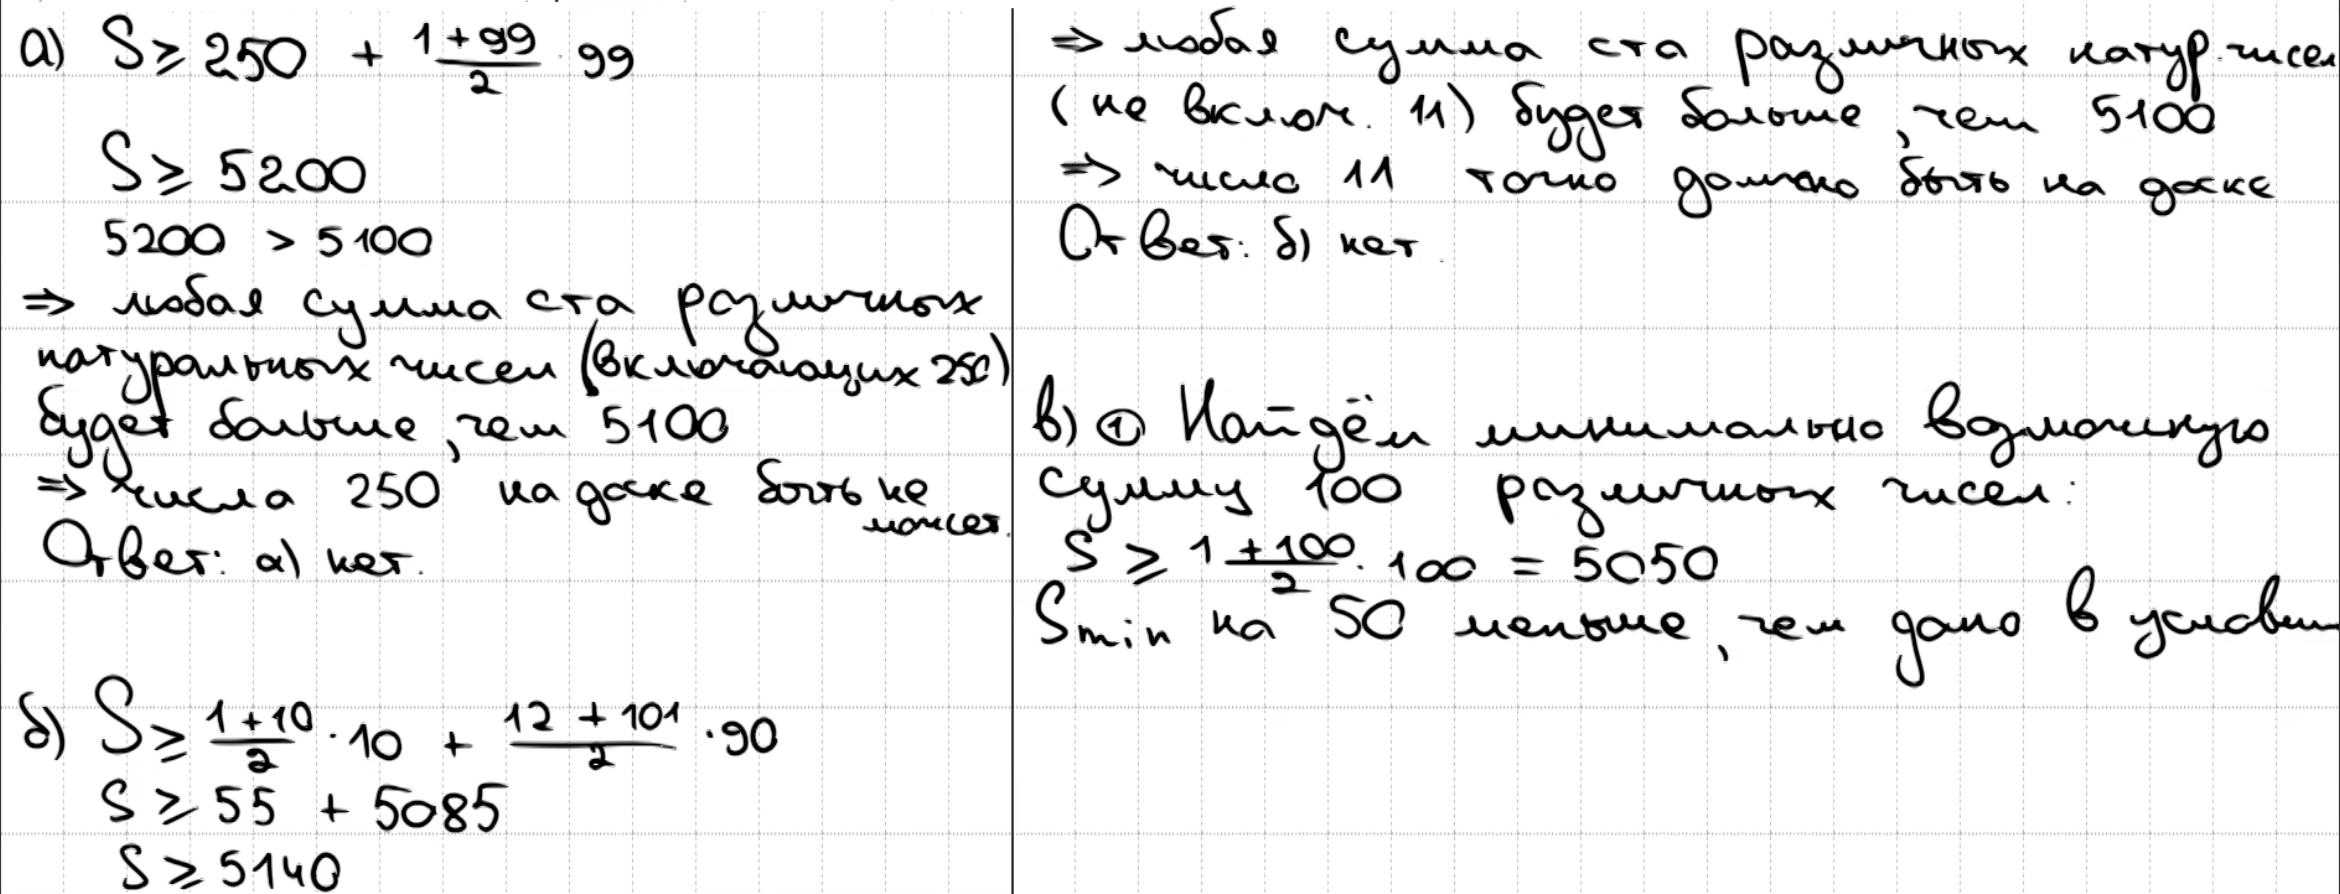 а) S ≥ 250 + (1+99)/2 · 99
S ≥ 5200
5200 > 5100
⇒ любая сумма ста различных
натуральных чисел (включающих 250)
будет больше, чем 5100
⇒ числа 250 на доске быть не
может.
Ответ: а) нет.
б) S ≥ (1+10)/2 · 10 + (12+101)/2 · 90
S ≥ 55 + 5085
S ≥ 5140
⇒ любая сумма ста различных натур. чисел
(не включ. 11) будет больше, чем 5100
⇒ число 11 точно должно быть на доске
Ответ: б) нет.
в) ① Найдём минимально возможную
сумму 100 различных чисел:
S ≥ (1+100)/2 · 100 = 5050
Smin на 50 меньше, чем дано в условии